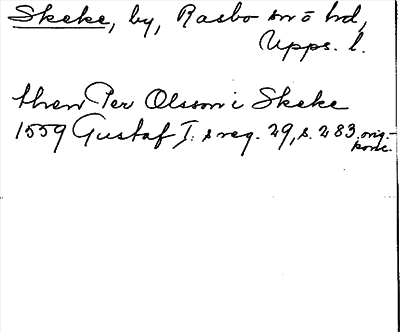 Skeke, by, Rasbo sn o hd,
Upps. l.
then Per Olsson i Skeke
1559 Gustaf I: s reg. 29, s. 283 orig.-
konc.